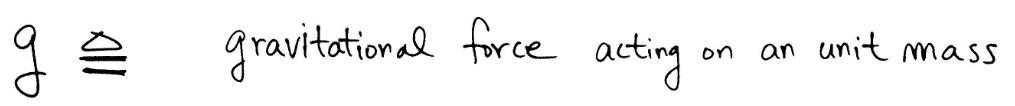 g ≜ gravitational force acting on an unit mass